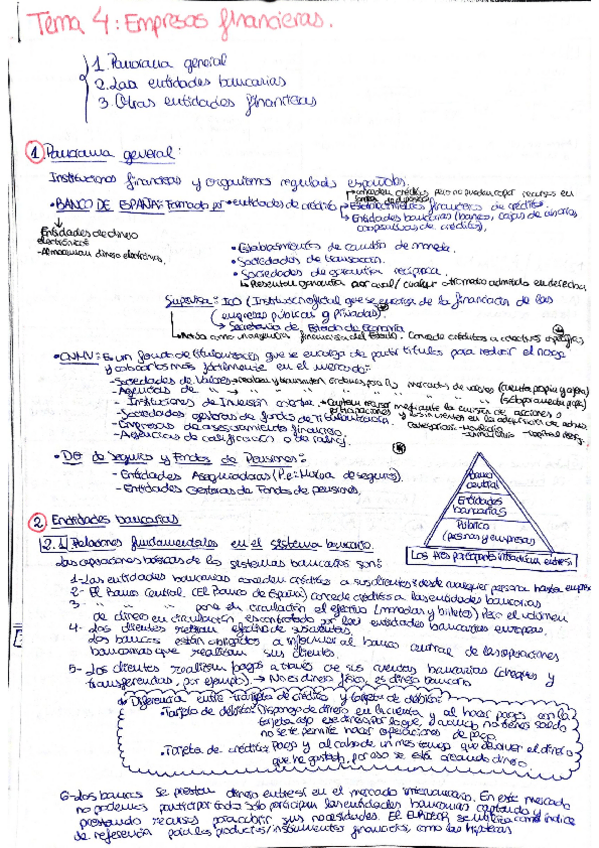 Tema 4: Empresas financieras.
1. Panorama general
2. Las entidades bancarias
3. Otras entidades financieras
1 Panorama general:
Instituciones financieras y organismos regulados españoles.
conceden créditos pero no pueden captar recursos en
• BANCO DE ESPAÑA: Formado por • entidades de crédito → Establecimientos financieros de crédito.
→ Entidades bancarias (bancos, cajas de ahorros
cooperativas de crédito).
Entidades de dinero
electrónico
- Almacenan dinero electrónico.
• Establecimientos de cambio de moneda.
• Sociedades de tasación.
• Sociedades de garantía recíproca.
↳ Presentan garantía por aval / cualquier otro medio admitido en derecho.
Supervisa: ICO (Institución oficial que se encarga de la financiación de las
empresas públicas y privadas).
→ Secretaría de Estado de Economía
financiera del Estado. Concede créditos a
• CNMV: Es un fondo de titulización que se encarga de partir títulos para reducir el riesgo
y colocarlos más fácilmente en el mercado:
- Sociedades de Valores → reciben y transmiten órdenes por los mercados de valores (cuenta propia y ajena)
- Agencias de " → " " " " " (sólo por cuenta ajena)
- Instituciones de Inversión colectiva → Captan mediante la emisión de acciones o
participaciones
- Sociedades gestoras de fondos de Titulización.
- Empresas de asesoramiento financiero.
- Agencias de calificación o de rating.
• DG de Seguros y Fondos de Pensiones:
- Entidades Aseguradoras (P.e: Mutua de seguros).
- Entidades Gestoras de Fondos de pensiones.
Banco
central
Entidades
bancarias
Público
(personas y empresas)
Los tres participantes interactúan entre sí
2 Entidades bancarias
2.1 Relaciones fundamentales en el sistema bancario.
Las operaciones básicas de los sistemas bancarios son:
1- Las entidades bancarias conceden créditos a sus clientes: desde cualquier persona hasta empresas
2- El Banco Central (El Banco de España) concede créditos a las entidades bancarias
3- " " " pone en circulación el efectivo (monedas y billetes) Pero el volumen
de dinero en circulación es controlado por las entidades bancarias europeas.
4- Los clientes retiran efectivo de sus cuentas.
Los bancos están obligados a informar al banco central de las operaciones
bancarias que realizan sus clientes.
5- Los clientes realizan pagos a través de sus cuentas bancarias (cheques y
transferencias, por ejemplo). → No es dinero físico, es dinero bancario
Diferencia entre tarjeta de crédito y tarjeta de débito:
• Tarjeta de débito: Dispongo de dinero en la cuenta y al hacer pagos con la
tarjeta bajo ese dinero, por lo que, y cuando no tienes saldo
no se te permite hacer operaciones de pago.
• Tarjeta de crédito: Pago y al cabo de un mes tengo que devolver el dinero
que he gastado, por eso se está creando dinero.
6- Los bancos se prestan dinero entre sí en el mercado interbancario. En este mercado
no podemos participar todos sólo participan las entidades bancarias captando y
prestando recursos para cubrir sus necesidades. El EURIBOR se utiliza como índice
de referencia para los productos/instrumentos financieros, como las hipotecas